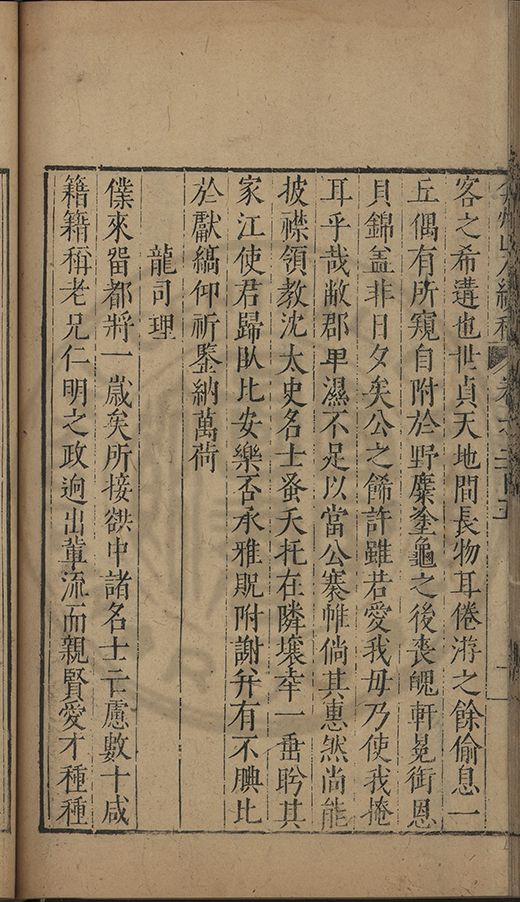 客之希遘也世貞天地間長物耳倦游之餘偷息一
丘偶有所窺自附於野麋塗龜之後喪魄軒冕銜恩
貝錦蓋非日夕矣公之餙許雖若愛我毋乃使我掩
耳乎哉敝郡卑濕不足以當公褰帷倘其惠然尚能
披襟領教沈太史名士蚤夭托在隣壤幸一垂盻其
家江使君歸臥比安樂否承雅貺附謝并有不腆比
於獻縞仰祈鑒納萬荷
龍司理
僕來留都將一歲矣所接歙中諸名士亡慮數十咸
籍籍稱老兄仁明之政逈出輩流而親賢愛才種種